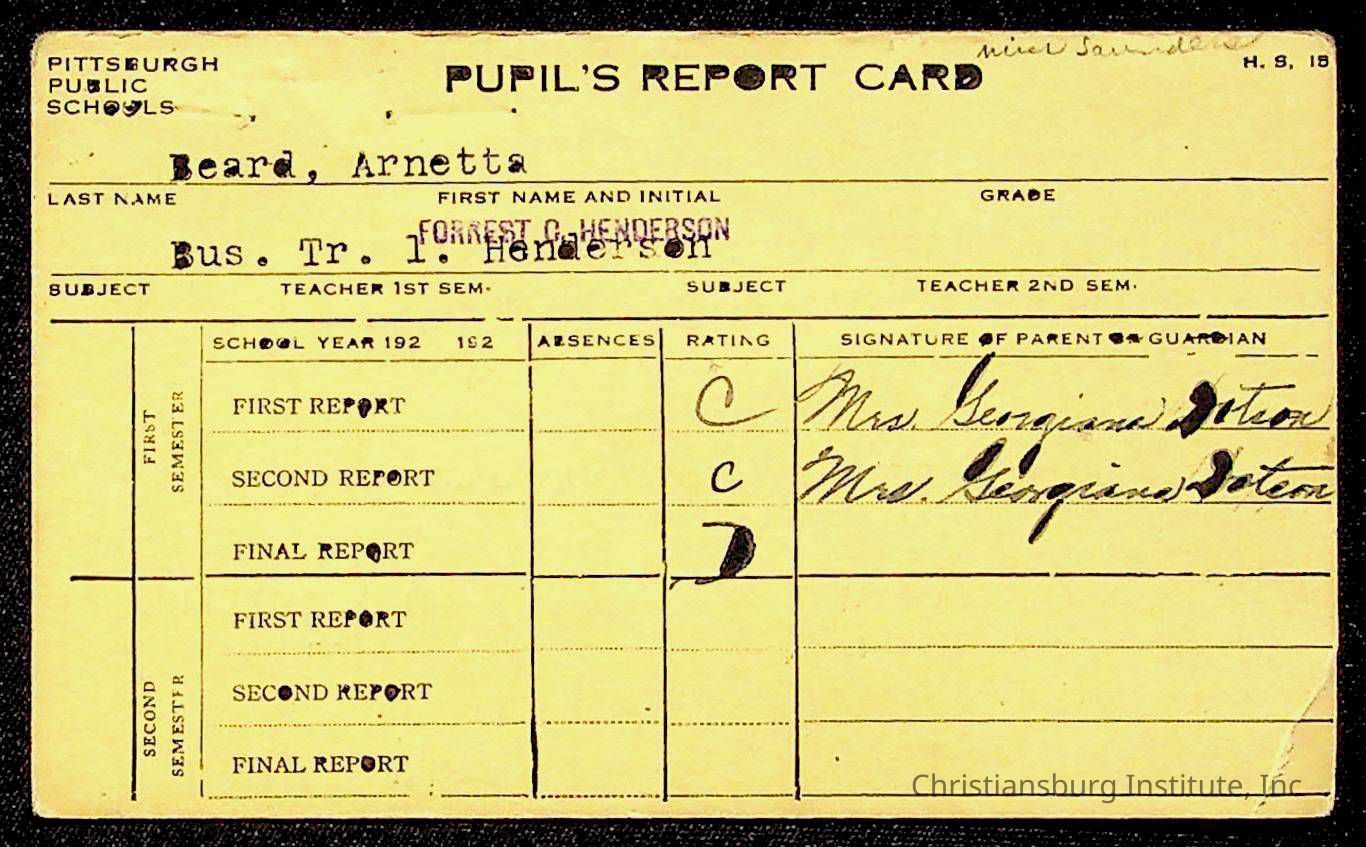 Saunders
PITTSBURGH PUBLIC SCHOOLS
PUPIL'S REPORT CARD
H. S. 15
Beard, Arnetta
LAST NAME FIRST NAME AND INITIAL GRADE
FORREST G. HENDERSON
Bus. Tr. 1. Henderson
SUBJECT TEACHER 1ST SEM. SUBJECT TEACHER 2ND SEM.
SCHOOL YEAR 192 192 ABSENCES RATING SIGNATURE OF PARENT OR GUARDIAN
FIRST SEMESTER
FIRST REPORT C Mrs. Georgiana Dotson
SECOND REPORT C Mrs. Georgiana Dotson
FINAL REPORT D
SECOND SEMESTER
FIRST REPORT
SECOND REPORT
FINAL REPORT
Christiansburg Institute, Inc